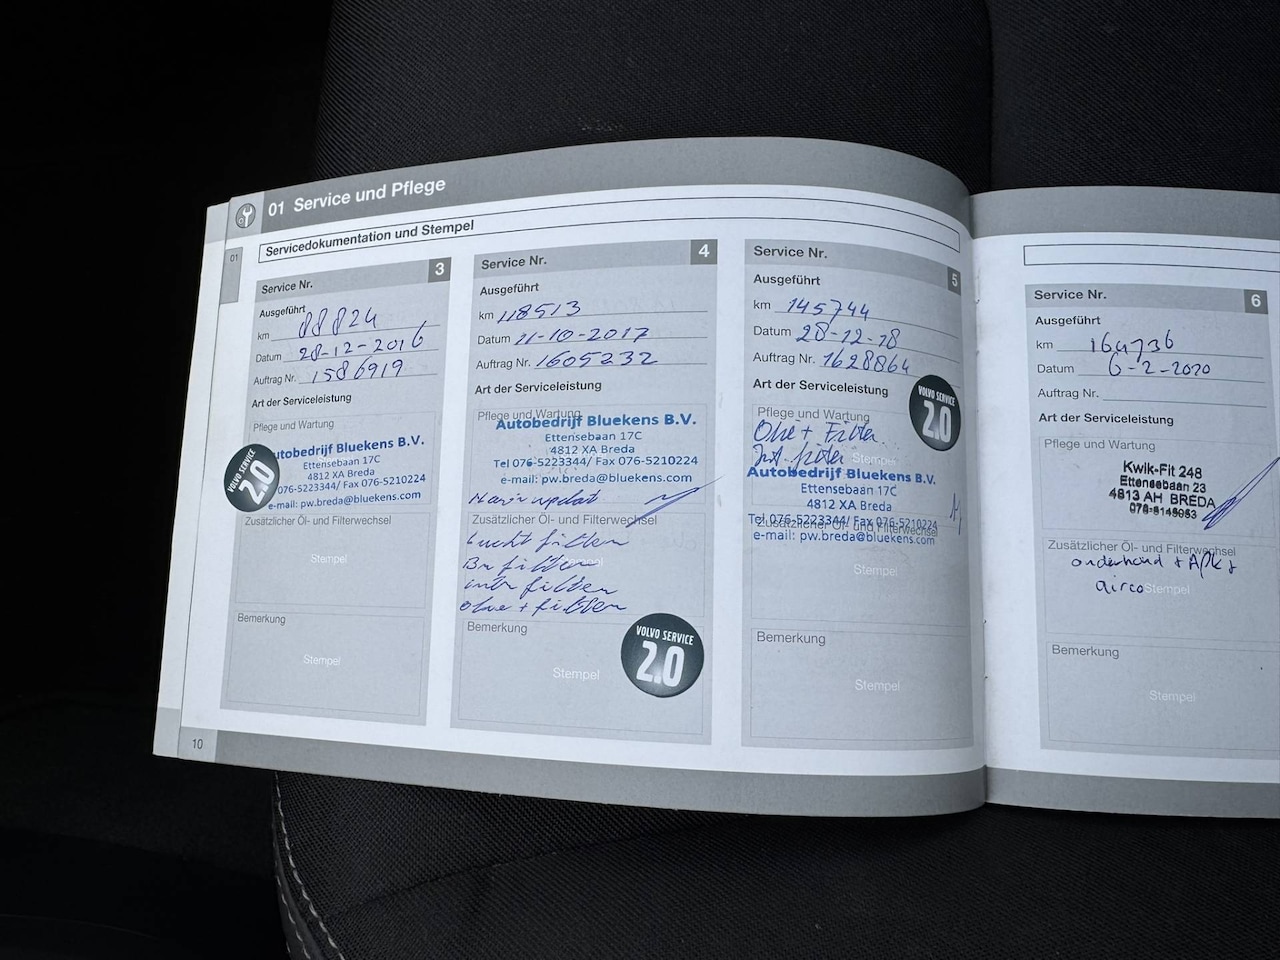 01 Service und Pflege
Servicedokumentation und Stempel
01
Service Nr. 3
Ausgeführt
km 88824
Datum 28-12-2016
Auftrag Nr. 1586919
Art der Serviceleistung
Pflege und Wartung
utobedrijf Bluekens B.V.
Ettensebaan 17C
4812 XA Breda
076-5223344/ Fax 076-5210224
e-mail: pw.breda@bluekens.com
VOLVO SERVICE
2.0
Zusätzlicher Öl- und Filterwechsel
Stempel
Bemerkung
Stempel
Service Nr. 4
Ausgeführt
km 118513
Datum 11-10-2017
Auftrag Nr. 1605232
Art der Serviceleistung
Pflege und Wartung
Autobedrijf Bluekens B.V.
Ettensebaan 17C
4812 XA Breda
Tel 076-5223344/ Fax 076-5210224
e-mail: pw.breda@bluekens.com
update
Zusätzlicher Öl- und Filterwechsel
Lucht filter
Br filter
intr filter
Olie + filter
Bemerkung
Stempel
VOLVO SERVICE
2.0
Service Nr. 5
Ausgeführt
km 145744
Datum 28-12-18
Auftrag Nr. 1628864
Art der Serviceleistung
Pflege und Wartung
VOLVO SERVICE
2.0
Olie + Filter
Int. filter
Autobedrijf Bluekens B.V.
Ettensebaan 17C
4812 XA Breda
Tel 076-5223344/ Fax 076-5210224
Zusätzlicher Öl- und Filterwechsel
e-mail: pw.breda@bluekens.com
Stempel
Bemerkung
Stempel
Service Nr. 6
Ausgeführt
km 164736
Datum 6-2-2020
Auftrag Nr.
Art der Serviceleistung
Pflege und Wartung
Kwik-Fit 248
Ettensebaan 23
4813 AH BREDA
Zusätzlicher Öl- und Filterwechsel
onderhoud + APK +
airco Stempel
Bemerkung
Stempel
10